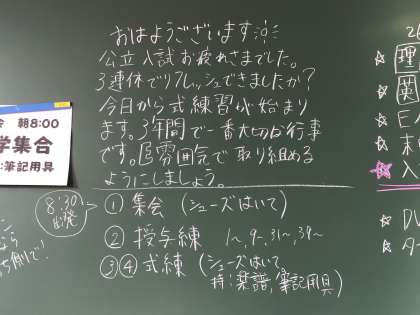 おはようございます
公立入試お疲れさまでした。
3連休でリフレッシュできましたか?
今日から式練習が始まり
ます。3年間で一番大切な行事
です。良い雰囲気で取り組める
ようにしましょう。
8:30
出発
① 集会 (シューズはいて)
② 授与練 1~, 9~, 31~, 39~
③④ 式練 (シューズはいて、
持:楽譜, 筆記用具)
朝8:00
学集合
:筆記用具
ち側で!
理
英
入